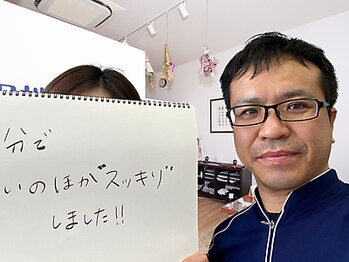 分で
いのほかスッキリ
しました!!